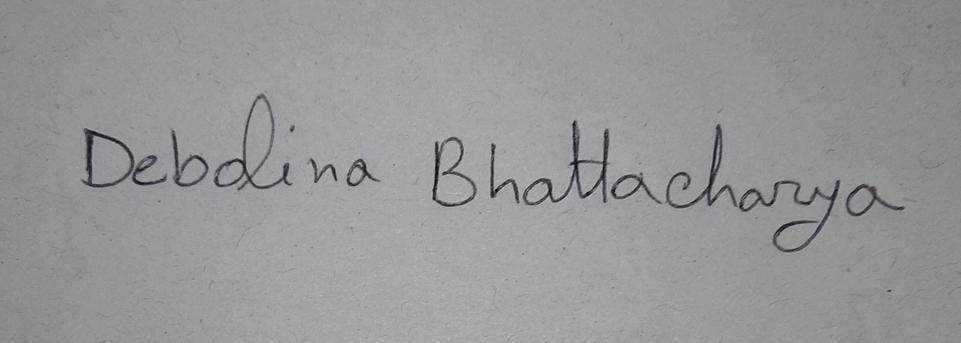 Debolina Bhattacharya